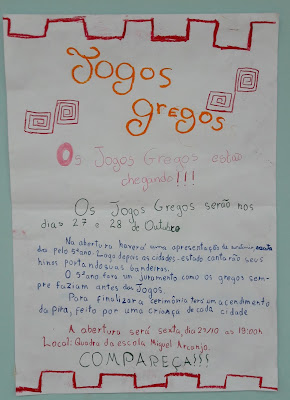 Jogos
gregos
Os Jogos Gregos estão
chegando!!!
Os Jogos Gregos serão nos
dias 27 e 28 de Outubro
Na abertura haverá uma apresentação da
da pelo 5º ano. Logo depois as cidades-estado cantarão seus
hinos portando suas bandeiras.
O 5º ano fará um juramento como os gregos sem-
pre faziam antes dos Jogos.
Para finalizar a cerimônia terá um acendimento
da pira, feito por uma criança de cada cidade
A abertura será sexta, dia 27/10 às 19:00h
Local: Quadra da escola Miguel Arcanjo.
COMPAREÇA!!!